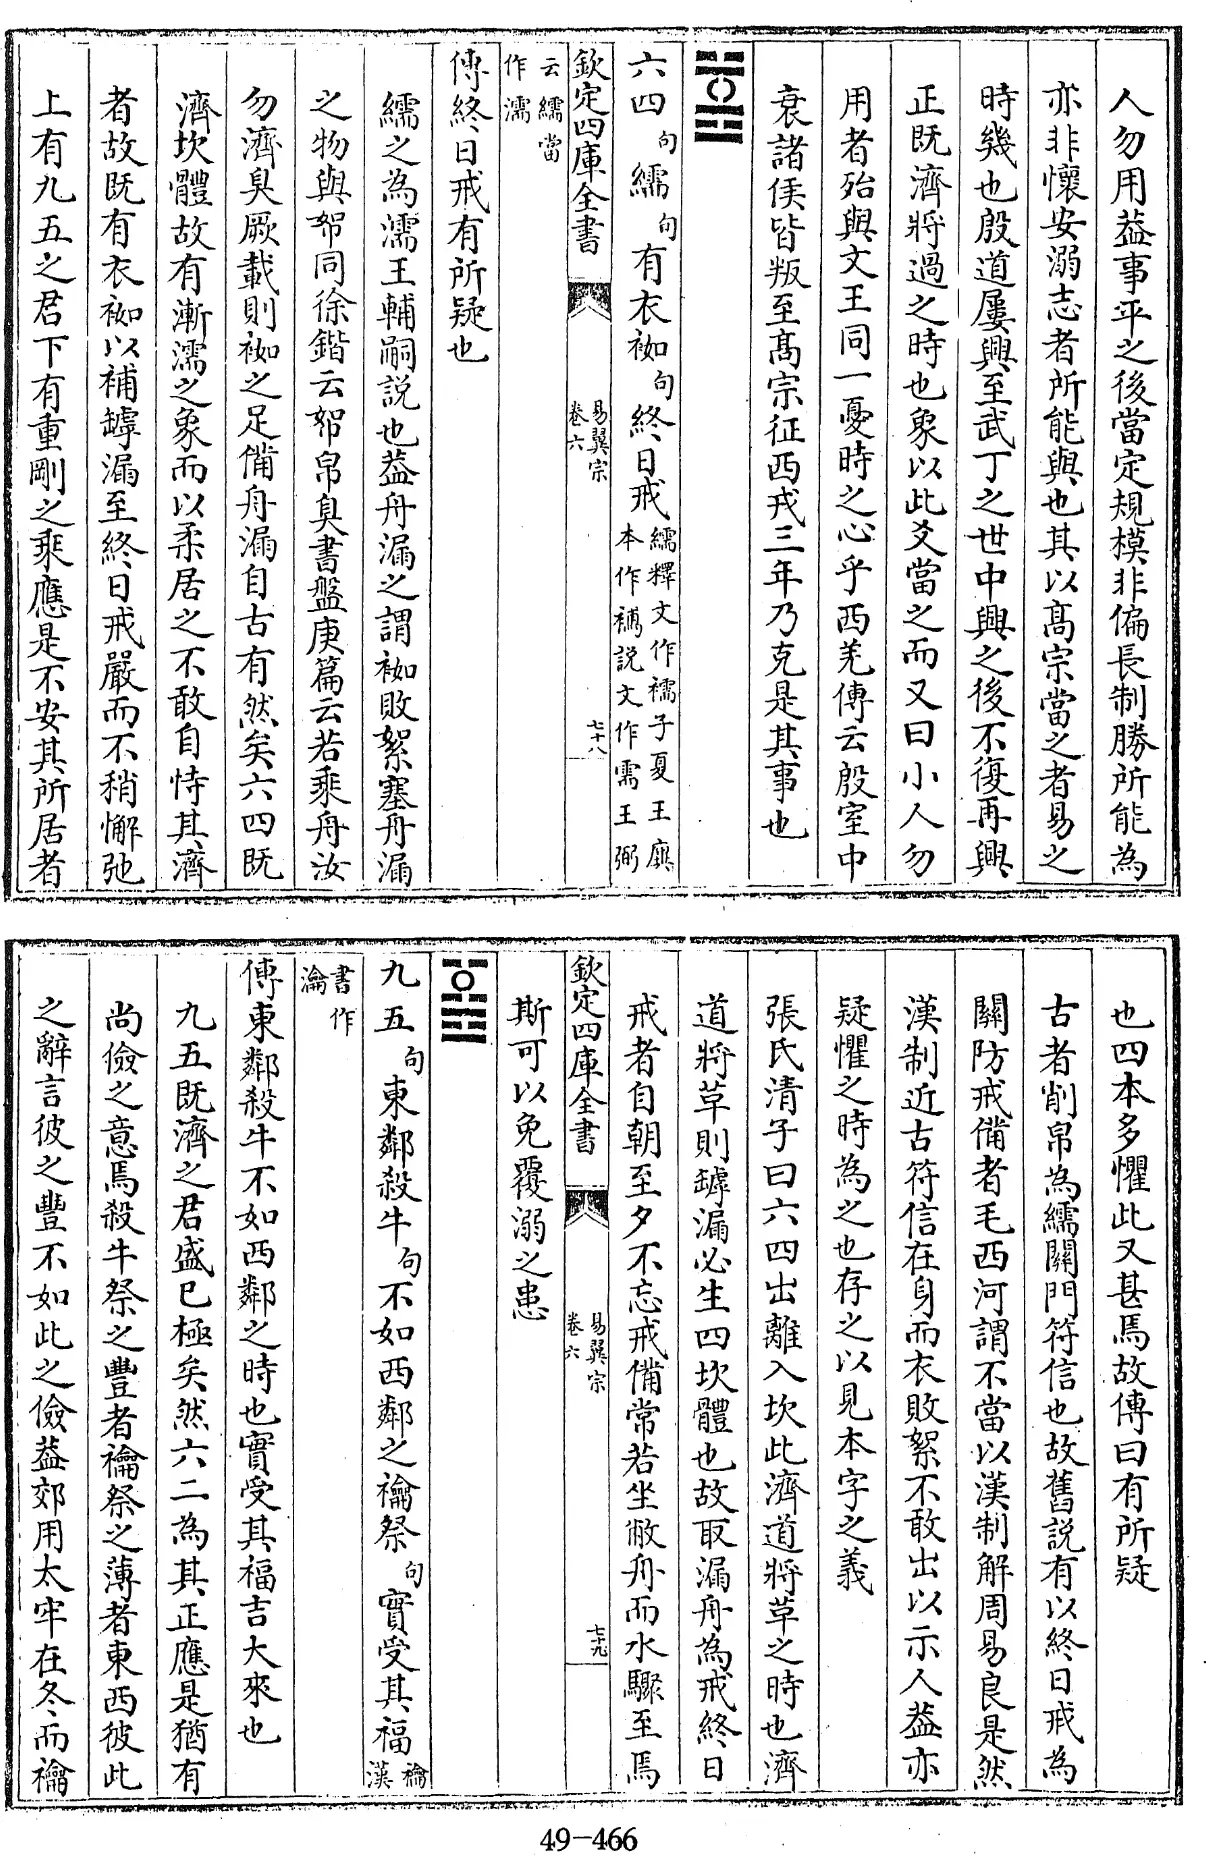 人勿用葢事平之後當定規模非偏長制勝所能為
亦非懷安溺志者所能與也其以髙宗當之者易之
時幾也殷道屢興至武丁之世中興之後不復再興
正既濟將過之時也象以此爻當之而又曰小人勿
用者殆與文王同一憂時之心乎西羌傳云殷室中
衰諸侯皆叛至髙宗征西戎三年乃克是其事也
六四句繻句有衣袽句終日戒繻釋文作襦子夏王廙
本作䙰説文作需王弼
欽定四庫全書
易翼宗
卷六
七十八
云繻當
作濡
傳終日戒有所疑也
繻之為濡王輔嗣説也葢舟漏之謂袽敗絮塞舟漏
之物與帤同徐鍇云帤帛臭書盤庚篇云若乘舟汝
勿濟臭厥載則袽之足備舟漏自古有然矣六四既
濟坎體故有漸濡之象而以柔居之不敢自恃其濟
者故既有衣袽以補罅漏至終日戒嚴而不稍懈弛
上有九五之君下有重剛之乘應是不安其所居者
也四本多懼此又甚焉故傳曰有所疑
古者削帛為繻關門符信也故舊説有以終日戒為
關防戒備者毛西河謂不當以漢制解周易良是然
漢制近古符信在身而衣敗絮不敢出以示人葢亦
疑懼之時為之也存之以見本字之義
張氏清子曰六四出離入坎此濟道將革之時也濟
道將革則罅漏必生四坎體也故取漏舟為戒終日
戒者自朝至夕不忘戒備常若坐敝舟而水驟至焉
欽定四庫全書
易翼宗
卷六
七十九
斯可以免覆溺之患
九五句東鄰殺牛句不如西鄰之禴祭句實受其福禴漢
書作
瀹
傳東鄰殺牛不如西鄰之時也實受其福吉大來也
九五既濟之君盛已極矣然六二為其正應是猶有
尚儉之意焉殺牛祭之豐者禴祭之薄者東西彼此
之辭言彼之豐不如此之儉葢郊用太牢在冬而禴
49-466